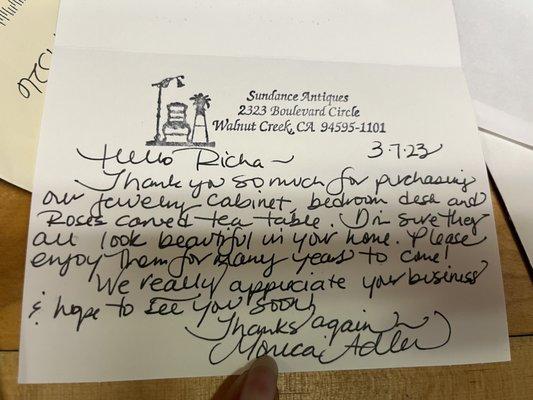 Sundance Antiques
2323 Boulevard Circle
Walnut Creek, CA 94595-1101
3.7.23
Hello Richa ~
Thank you so much for purchasing
our jewelry cabinet, bedroom desk and
Roses carved tea table. I'm sure they
all look beautiful in your home. Please
enjoy them for many years to come!
We really appriciate your business
& hope to see you soon!
Thanks again ~
Monica Adler